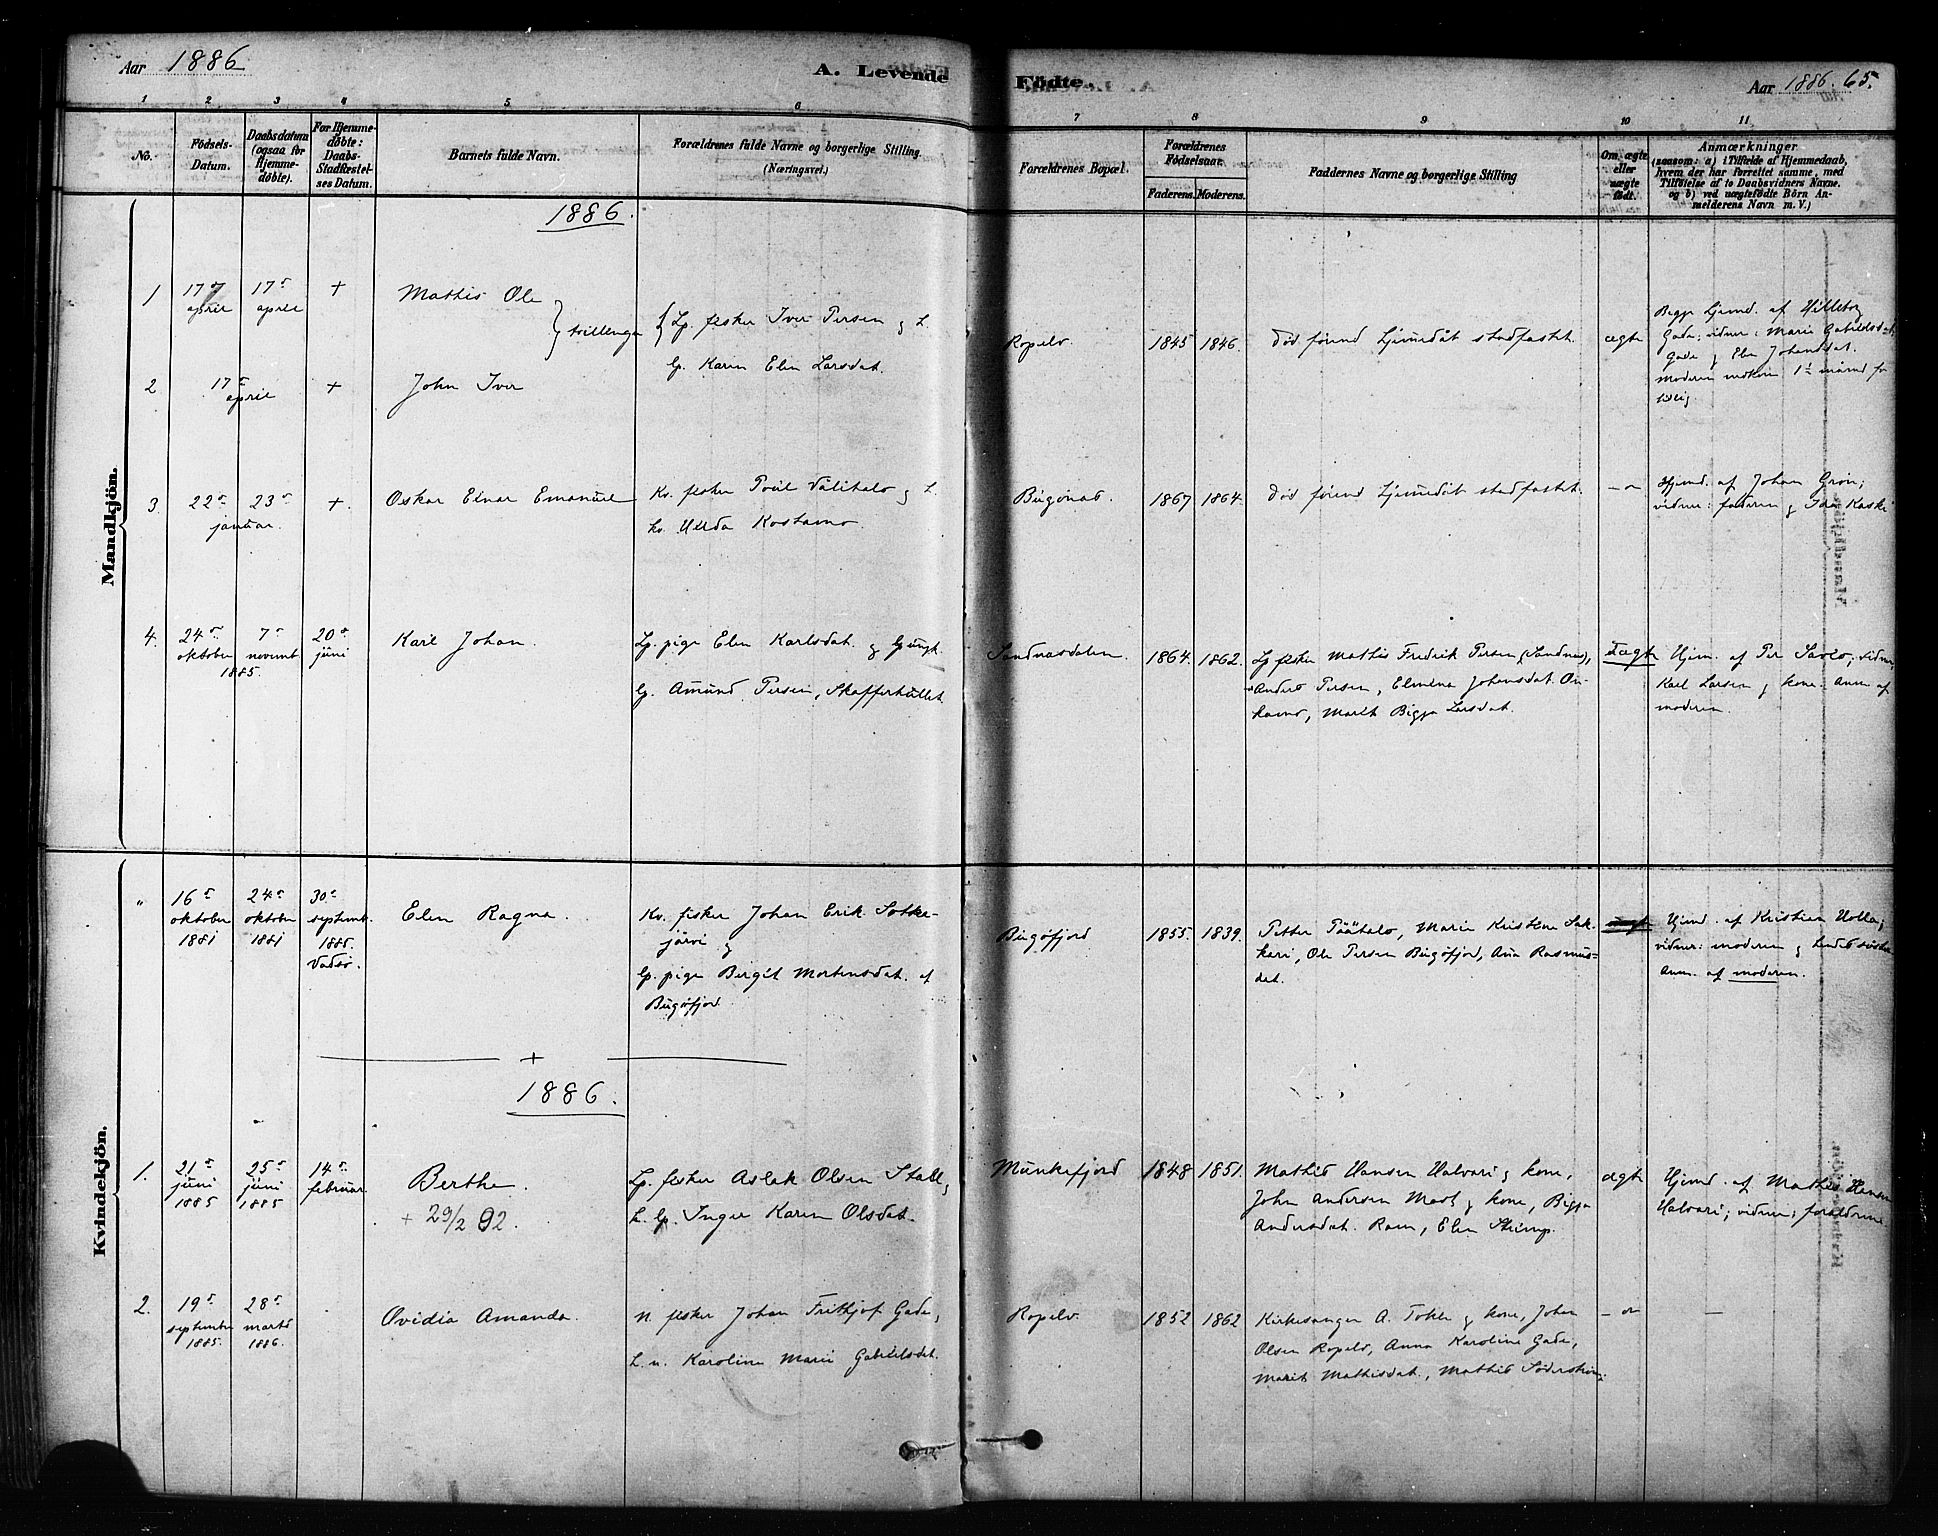 Aar 1886
A. Levende Födte.
Aar 1886. 65.
1 2 3 4 5 6 7 8 9 10 11
No.
Födsels-
Datum.
Daabsdatum
(ogsaa for
Hjemme-
döbte).
For Hjemme-
döbte:
Daabs-
Stadfæstel-
ses Datum.
Barnets fulde Navn.
Forældrenes fulde Navne og borgerlige Stilling.
(Næringsvei.)
Forældrenes Bopæl.
Forældrenes
Födselsaar.
Faderens. Moderens.
Faddernes Navne og borgerlige Stilling
Om ægte
eller
uægte
födt.
Anmærkninger
(saasom: a) i Tilfælde af Hjemmedaab,
hvem der har forrettet samme, med
Tilföielse af to Daabsvidners Navne.
og b) ved uægtefödte Börn An-
melderens Navn m. V.)
Mandkjön.
1886.
1 17 april 17 april + Mathis Ole
2 17 april + John Iver
tvillinger
Lp. fisker Iver Persen og h.
lp. Karen Elen Larsdat.
Ropelv. 1845 1846. død førend hjemdåb stadfæstet. ægte
Begge hjemd. af
Gade; vidner: Marie
Gade og Elen Johansdat.
moderen nedkom 1½ måned for
tidlig.
3. 22 23 januar. + Oskar Einar Emanuel
Kv. fisker Poül Välitalo og h.
kv. Ulrda Kostamo
Bügönæs. 1867 1864. død førend hjemmedåb stadfæstet.
Hjemd. af Johan Grön;
vidner: faderen og Ida Koski
4. 24 oktober 7 novemb. 1885. 20 jüni Karl Johan.
Lp. pige Elen Karlsdat. og üngk.
lp. Amünd Persen, Skafferhüllet.
Sandnæsdalen. 1864. 1862.
Lp fisker Mathis Fredrik Persen (Sandnæs),
Anders Persen, Elmina Johansdat.
Marit Bigga Larsdat.
Uægte
Hjem. af Per Savio, vidner
Karl Larsen og kone. Anm af
moderen.
Kvindekjön.
" 16 oktober 1881 24 oktober 1881 30 septemb. 1885. Vadsø. Elen Ragna.
Kv. fisker Johan Erik Sotka-
järvi og
lp. pige Bergit Mortensdat. af
Bügöfjord.
Bügöfjord 1855. 1839.
Petter Päätalo, Marie Kristine Sak-
kari, Ole Persen Bügöfjord, Ana Rasmüs-
dat.
Hjemd. af Kristian Holla;
vidner: moderen og hendes søster
Anm. af moderen.
+
1886.
1. 21 jüni 1885 25 jüni 1885 14 febrüar. Berthe.
+ 29/2 92.
Lp. fisker Aslak Olsen Stall,
h. lp. Inger Karen Olsdat.
Münkefjord 1848 1851.
Mathis Hansen Halvari og kone,
John Andersen Mast og kone, Bigga
Andersdat. Ram, Elen
ægte
Hjemd. af Mathis Hansen
Halvari; vidner; forældrene
2. 19 septembr 1885. 28 marts 1886. Ovidia Amanda.
n. fisker Johan Frithjof Gade,
h. n. Karoline Marie Gabrielsdat.
Ropelv. 1852 1862
Kirkesanger A. Tokle og kone, Johan
Olsen Ropelv, Anna Karoline Gade,
Marit Mathisdat., Mathis Söderström.